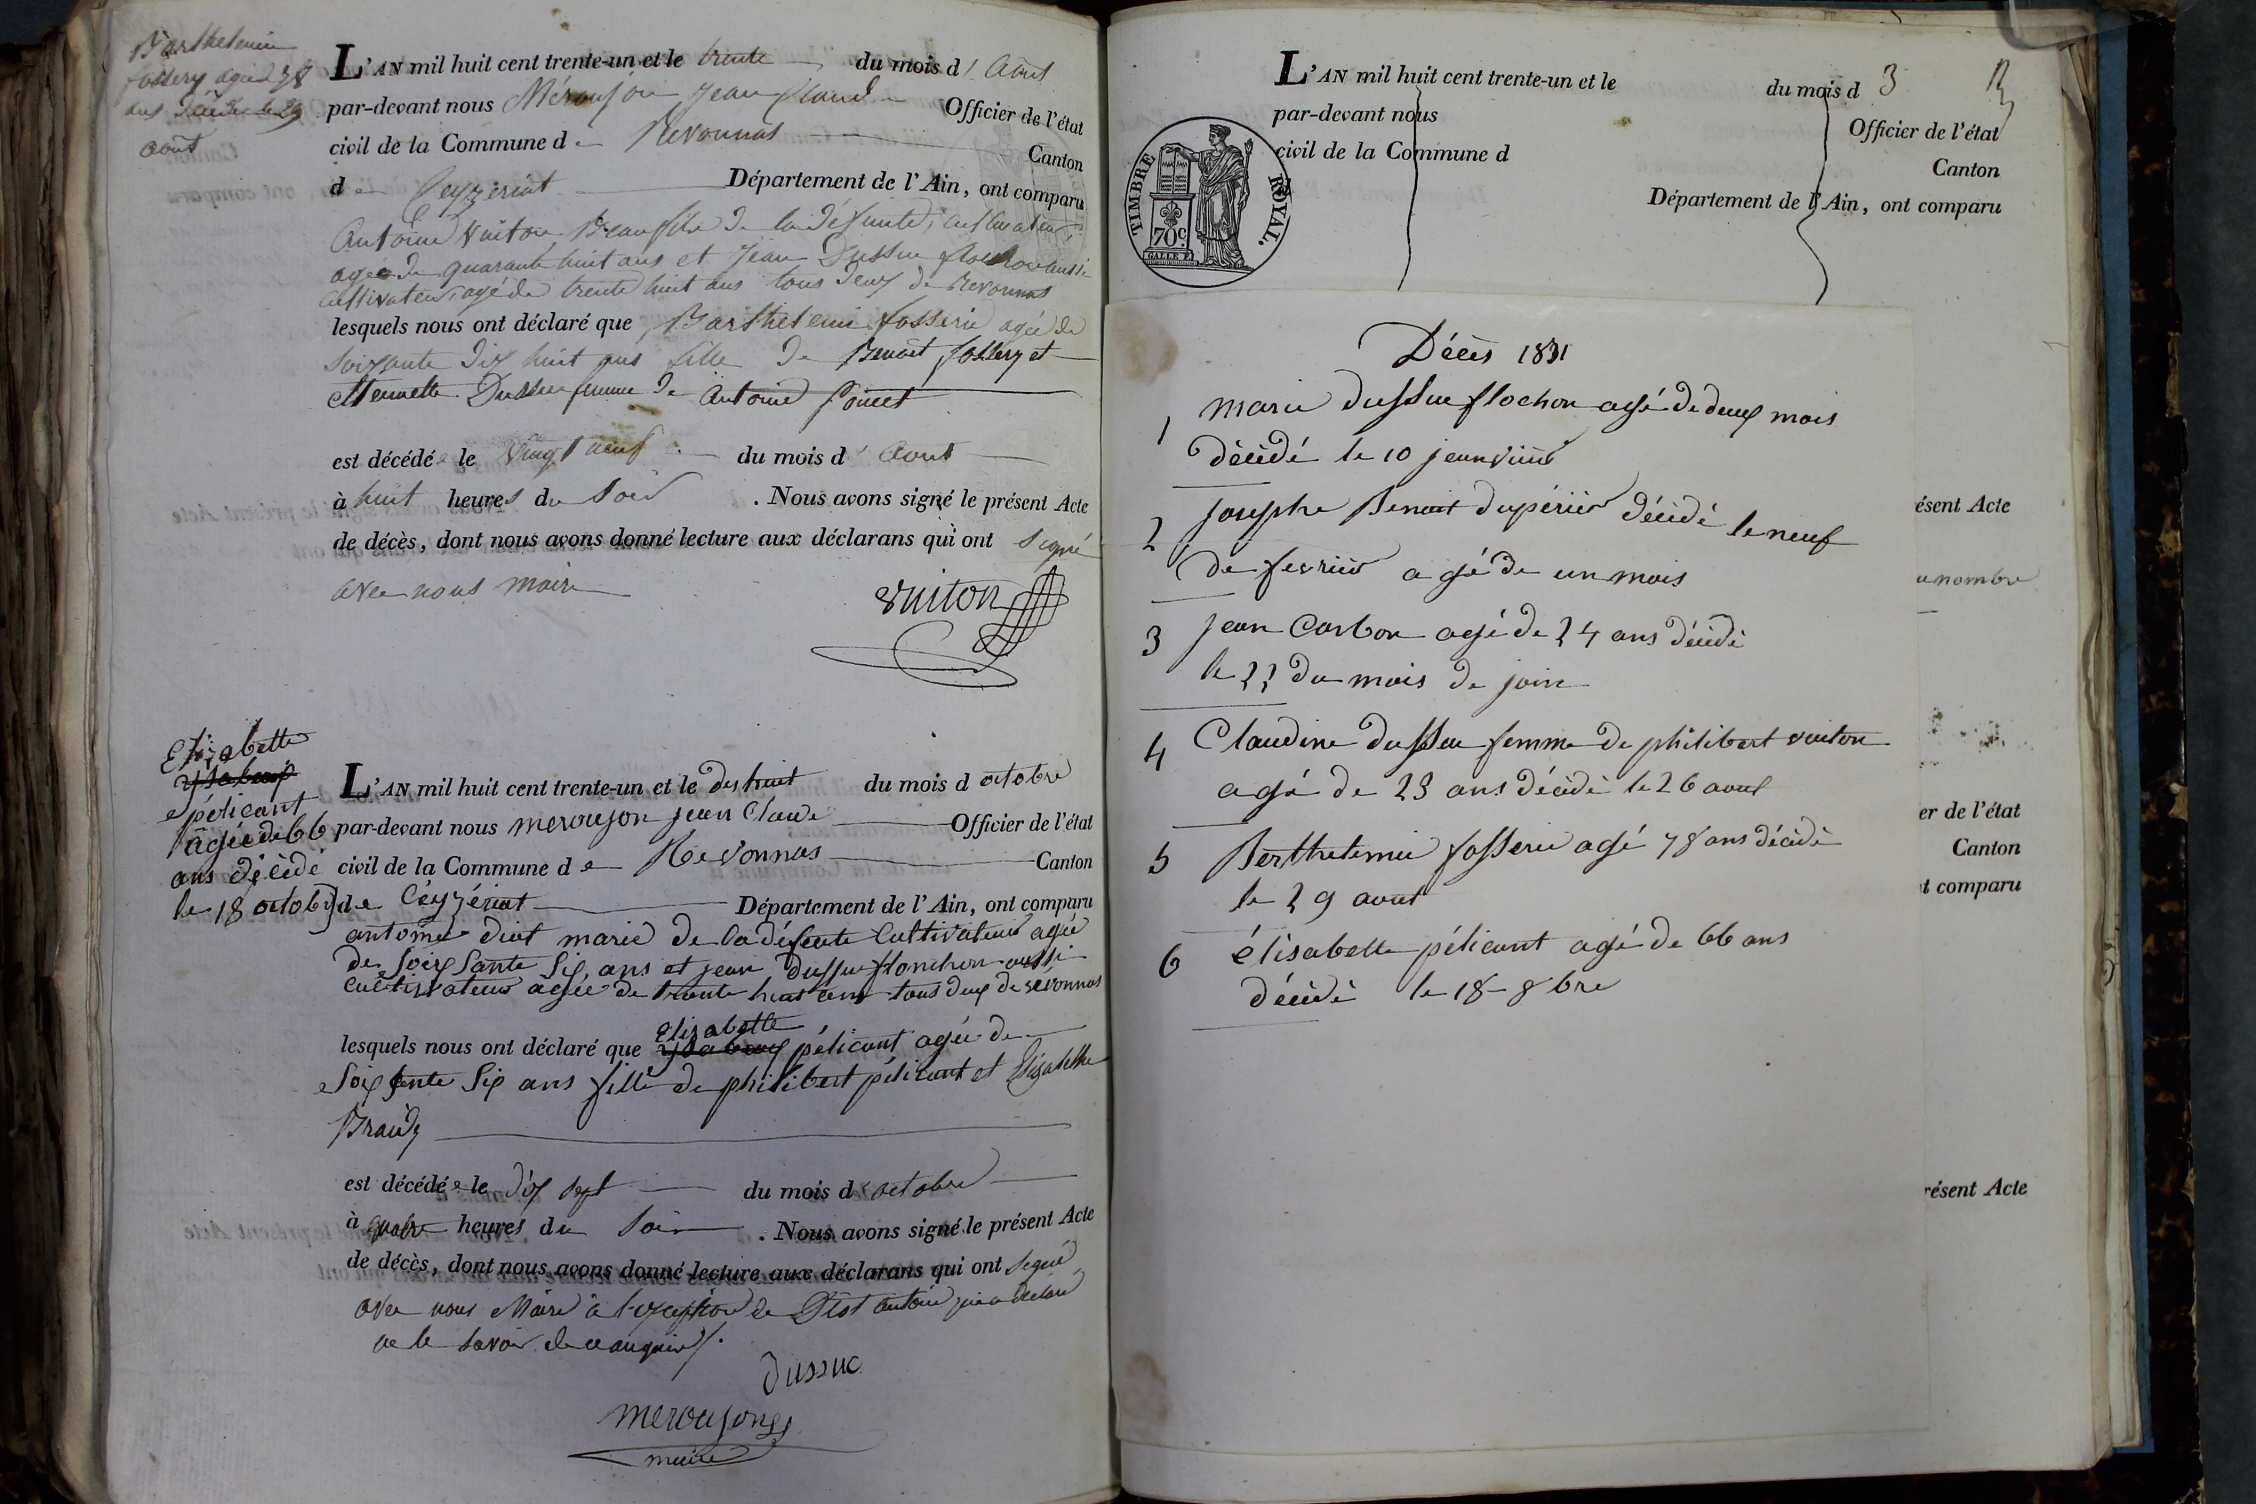 Barthelemie
fossery agée de 78
ans décédée le 29
août
L'AN mil huit cent trente-un et le trente du mois d'Août
par-devant nous Méroujon Jean Claude Officier de l'état
civil de la Commune de Revonnas Canton
de Ceyzeriat Département de l'Ain, ont comparu
Antoine Vuiton Beaufils de la défunte, cultivateur,
agée de quarante huit ans et Jean Dussuc flochon aussi
cultivateur, agé de trente huit ans tous deux de Revonnas
lesquels nous ont déclaré que Barthelemie fosserie agée de
soixante dix huit ans fille de Benoit fossery et
Dussuc femme de Antoine Poncet
est décédée le Vingt neuf du mois d'Aout
à huit heures du Soir. Nous avons signé le présent Acte
de décès, dont nous avons donné lecture aux déclarans qui ont signé
avec nous maire
vuiton
Elizabette
pélicant
agée de 66
ans décédé
le 18 octobre
L'AN mil huit cent trente-un et le dix huit du mois d octobre
par-devant nous meroujon jean Claude Officier de l'état
civil de la Commune de Revonnas Canton
de Céyzériat Département de l'Ain, ont comparu
antoine diot marié de la défente cultivateur agée
de soixsante six ans et jean dussuc flonchon aussi
cultivateur agée de trante huit ans tous deux de revonnas
elizabette
lesquels nous ont déclaré que pélicant agée de
soixsente six ans fille de philibert pélicant et Elizabethe
Braidy
est décédée le dix sept du mois d'octobre
à quatre heures du Soir. Nous avons signé le présent Acte
de décès, dont nous avons donné lecture aux déclarans qui ont signé
avec nous Maire à l'exception de Diot antoine qui a déclaré
ne le savoir de ce enquis.
Dussuc
meroujon
maire
L'AN mil huit cent trente-un et le du mois d 3
par-devant nous Officier de l'état
civil de la Commune d Canton
Département de l'Ain, ont comparu
TIMBRE ROYAL.
70c
Décès 1831
1 marie dussuc flochon agé de deux mois
décédé le 10 jeanviier
2 josephe Benoit dupérier décédé le neuf
de fevrier agé de un mois
3 jean Carbon agé de 24 ans décédé
le 22 du mois de join
4 Claudine dussuc femme de philibert vuiton
agé de 23 ans décédé le 26 aout
5 Berthelemie fosserie agé 78 ans décédé
le 29 aout
6 élisabette pélicant agé de 66 ans
décédé le 18 - 8bre
ésent Acte
nombre
er de l'état
Canton
t comparu
résent Acte